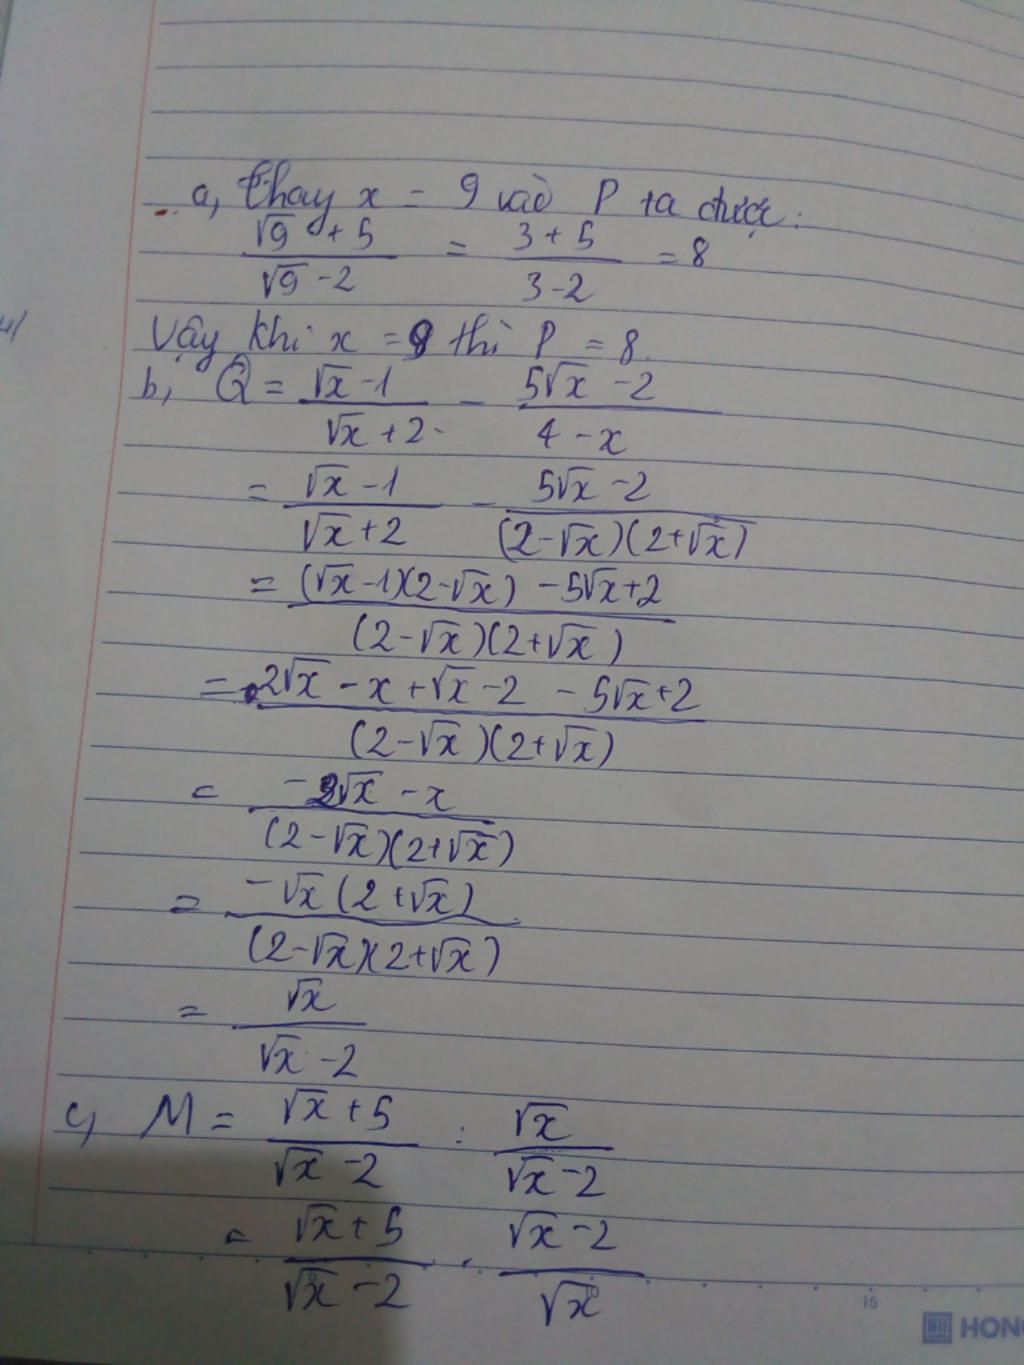 a, thay x = 9 vào P ta được:
(√9 + 5)/(√9 - 2) = (3 + 5)/(3 - 2) = 8
Vậy khi x = 9 thì P = 8.
b, Q = (√x - 1)/(√x + 2) - (5√x - 2)/(4 - x)
= (√x - 1)/(√x + 2) - (5√x - 2)/((2-√x)(2+√x))
= ((√x - 1)(2-√x) - 5√x + 2)/((2-√x)(2+√x))
= (2√x - x + √x - 2 - 5√x + 2)/((2-√x)(2+√x))
= (-2√x - x)/((2-√x)(2+√x))
= (-√x(2+√x))/((2-√x)(2+√x))
= √x/(√x - 2)
c, M = (√x + 5)/(√x - 2) : √x/(√x - 2)
= (√x + 5)/(√x - 2) . (√x - 2)/√x
15
HONG